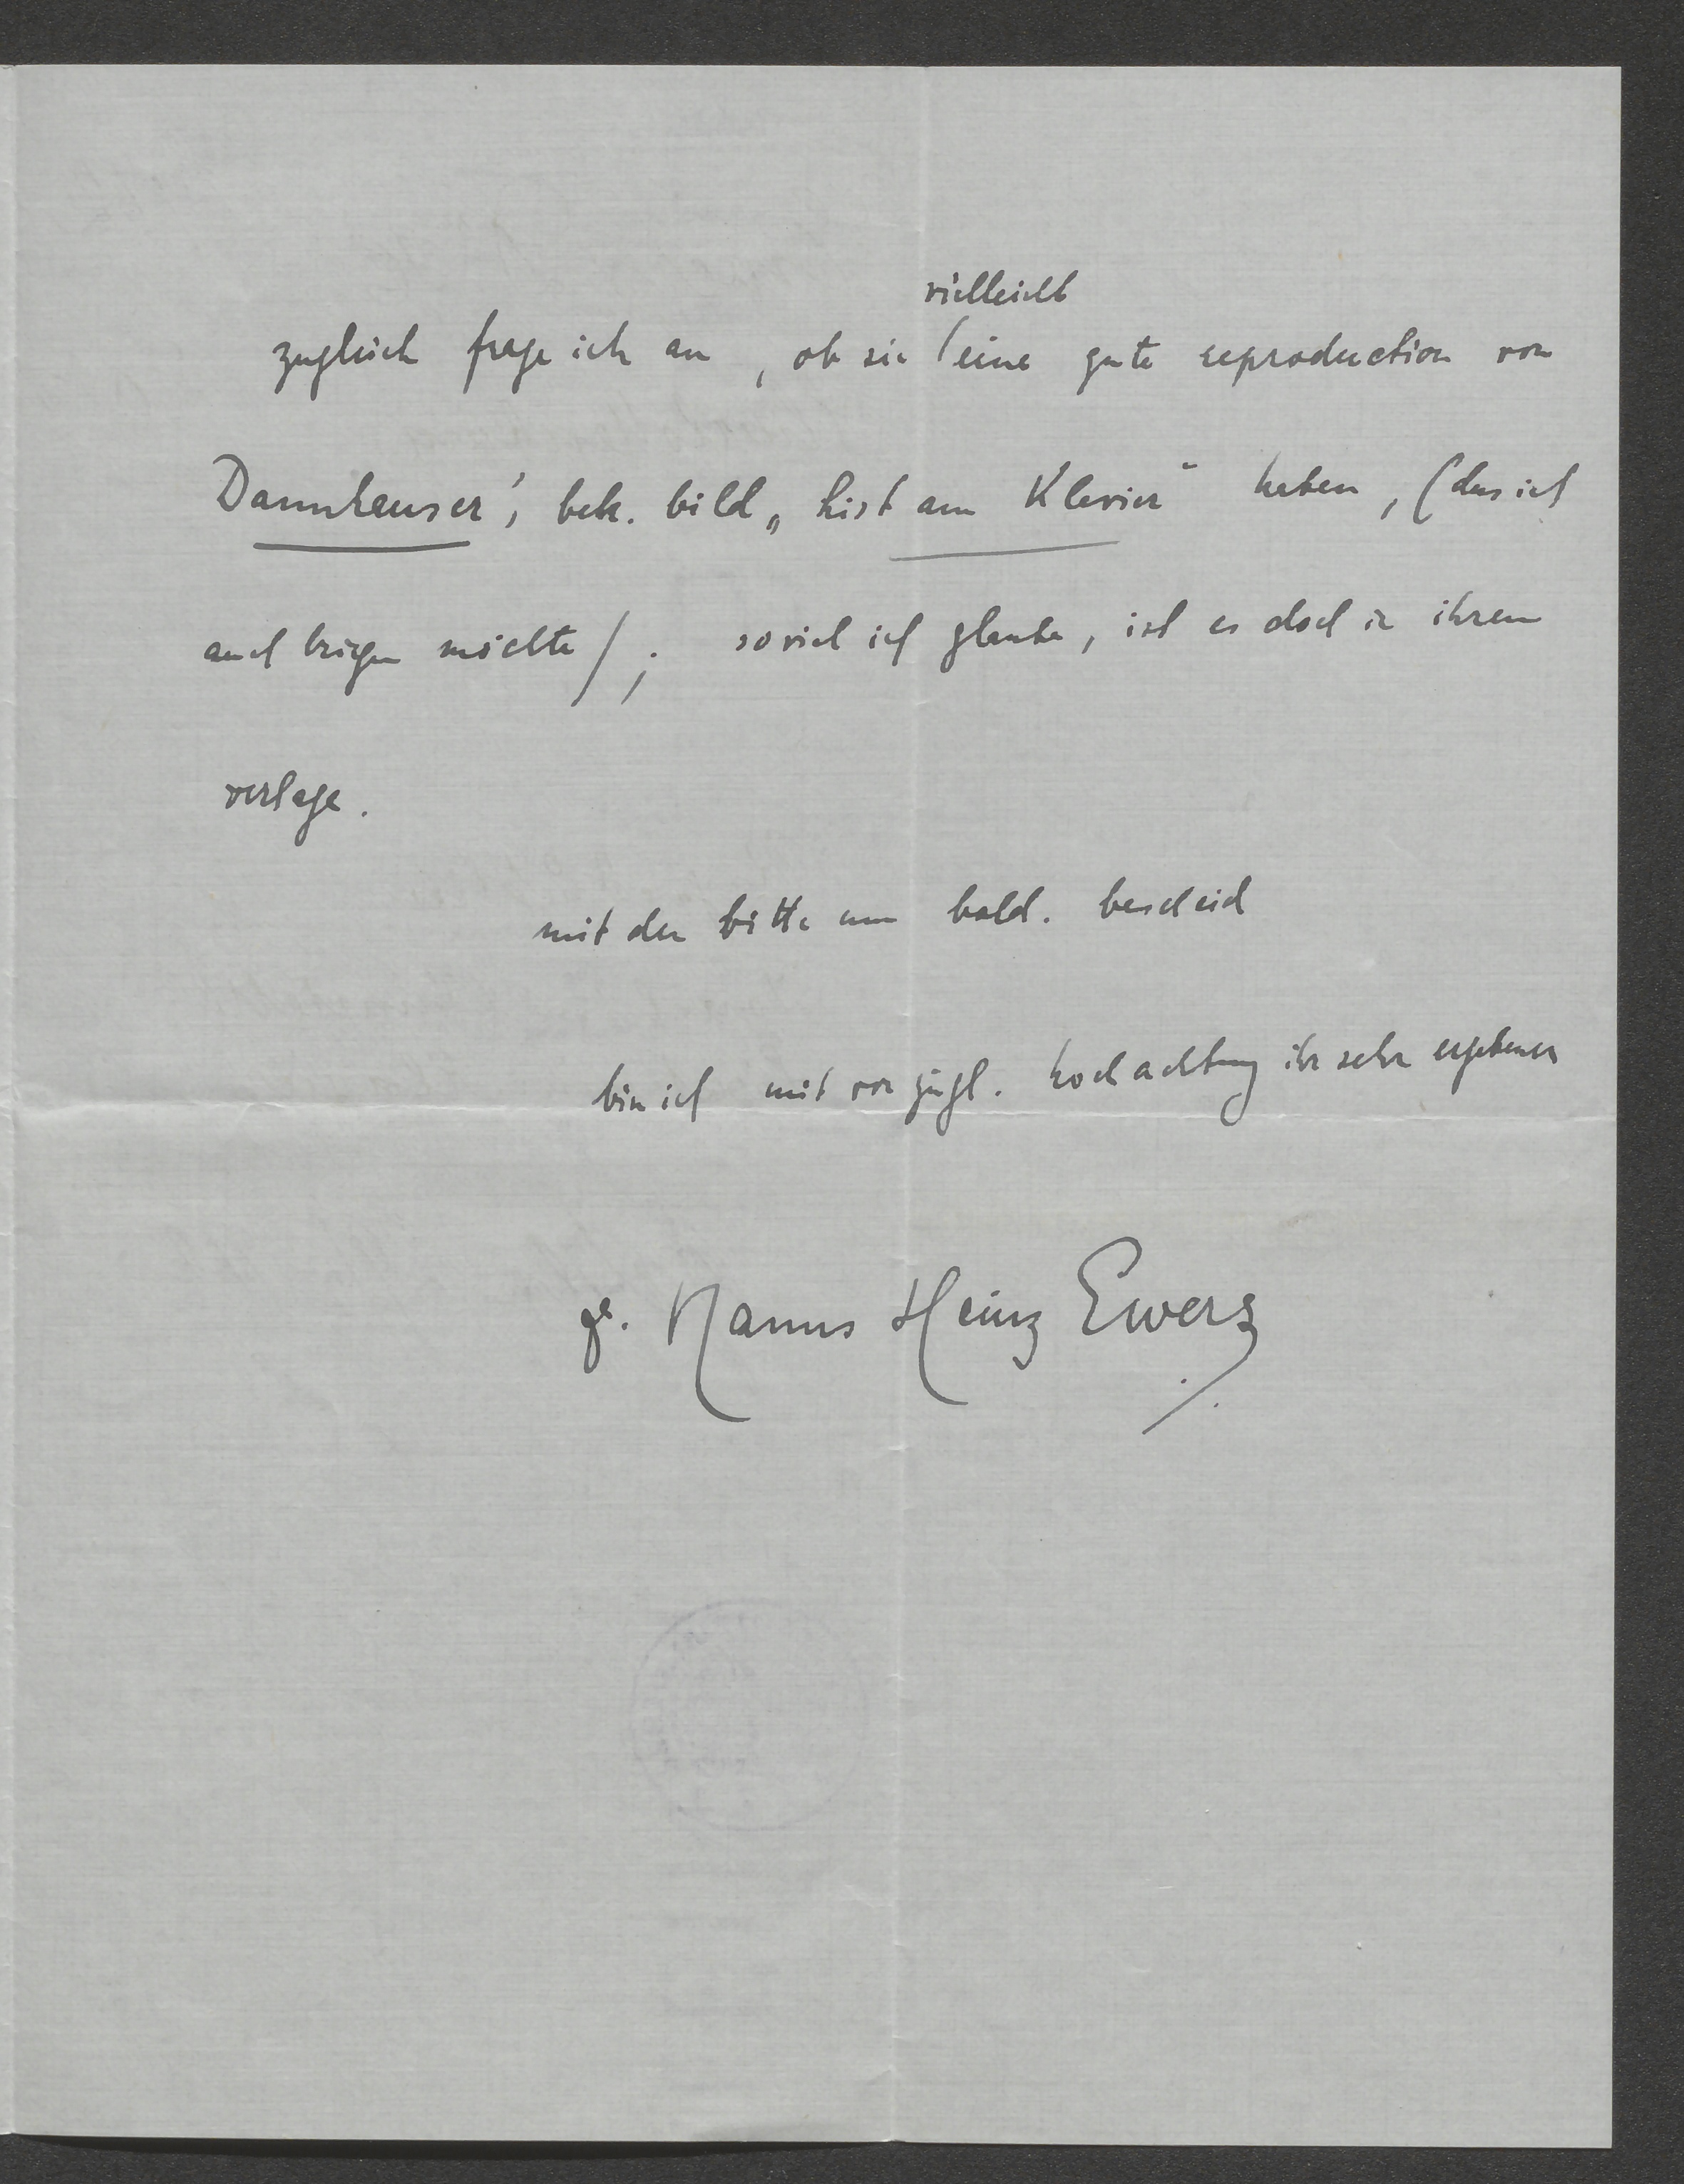 vielleicht
zugleich frage ich an, ob sie (eine gute reproduction von
Dannhauser's bek. bild „list am Klavier" haben, (das ich
auch bringen möchte); soviel ich glaube, ist es doch in ihrem
verlage.
mit der bitte um bald. bescheid
bin ich mit vorzügl. hochachtung ihr sehr ergebener
Hanns Heinz Ewers